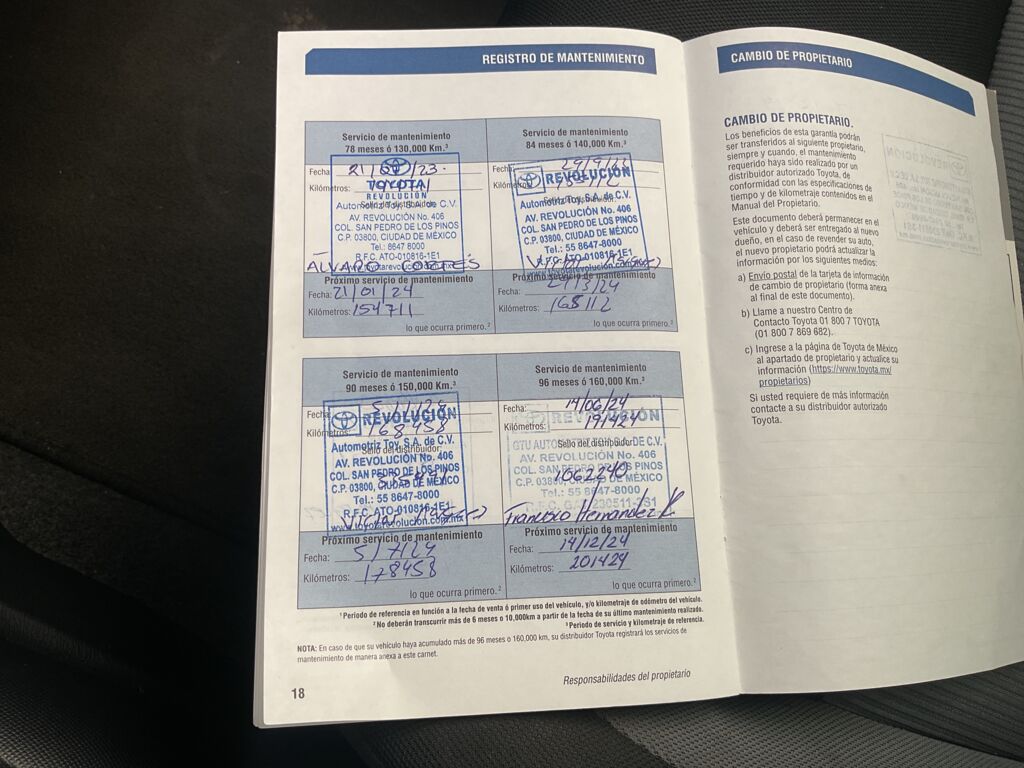 REGISTRO DE MANTENIMIENTO
Servicio de mantenimiento
78 meses ó 130,000 Km.³
Fecha:
Kilómetros:
TOYOTA
REVOLUCIÓN
Automotriz Toy, S.A. de C.V.
AV. REVOLUCIÓN No. 406
COL. SAN PEDRO DE LOS PINOS
C.P. 03800, CIUDAD DE MÉXICO
Tel.: 8647 8000
R.F.C. ATO-010816-1E1
ALVARO
Próximo servicio de mantenimiento
Fecha: 21/01/24
Kilómetros: 154711
lo que ocurra primero.²
Servicio de mantenimiento
84 meses ó 140,000 Km.³
Fecha:
Kilómetros:
REVOLUCIÓN
Automotriz Toy, S.A. de C.V.
AV. REVOLUCIÓN No. 406
COL. SAN PEDRO DE LOS PINOS
C.P. 03800, CIUDAD DE MÉXICO
Tel.: 55 8647-8000
R.F.C. ATO-010816-1E1
Próximo servicio de mantenimiento
Fecha: 29/3/24
Kilómetros: 168112
lo que ocurra primero.²
Servicio de mantenimiento
90 meses ó 150,000 Km.³
Fecha: 5/1/24
Kilómetros: 168458
REVOLUCIÓN
Automotriz Toy, S.A. de C.V.
Sello del distribuidor
AV. REVOLUCIÓN No. 406
COL. SAN PEDRO DE LOS PINOS
C.P. 03800, CIUDAD DE MÉXICO
Tel.: 55 8647-8000
R.F.C. ATO-010816-1E1
www.toyotarevolucion.com.mx
Próximo servicio de mantenimiento
Fecha: 5/7/24
Kilómetros: 178458
lo que ocurra primero.²
Servicio de mantenimiento
96 meses ó 160,000 Km.³
Fecha: 14/06/24
Kilómetros: 191424
REVOLUCIÓN
Sello del distribuidor DE C.V.
AV. REVOLUCIÓN No. 406
COL. SAN PEDRO DE LOS PINOS
1062940
C.P. 03800, CIUDAD DE MÉXICO
Tel.: 55 8647-8000
Francisco Hernandez R.
Próximo servicio de mantenimiento
Fecha: 14/12/24
Kilómetros: 201424
lo que ocurra primero.²
¹ Periodo de referencia en función a la fecha de venta ó primer uso del vehículo, y/o kilometraje de odómetro del vehículo.
² No deberán transcurrir más de 6 meses o 10,000km a partir de la fecha de su último mantenimiento realizado.
³ Periodo de servicio y kilometraje de referencia.
NOTA: En caso de que su vehículo haya acumulado más de 96 meses o 160,000 km, su distribuidor Toyota registrará los servicios de
mantenimiento de manera anexa a este carnet.
Responsabilidades del propietario
18
CAMBIO DE PROPIETARIO
CAMBIO DE PROPIETARIO.
Los beneficios de esta garantía podrán
ser transferidos al siguiente propietario,
siempre y cuando, el mantenimiento
requerido haya sido realizado por un
distribuidor autorizado Toyota, de
conformidad con las especificaciones de
tiempo y de kilometraje contenidos en el
Manual del Propietario.
Este documento deberá permanecer en el
vehículo y deberá ser entregado al nuevo
dueño, en el caso de revender su auto,
el nuevo propietario podrá actualizar la
información por los siguientes medios:
a) Envío postal de la tarjeta de información
de cambio de propietario (forma anexa
al final de este documento).
b) Llame a nuestro Centro de
Contacto Toyota 01 800 7 TOYOTA
(01 800 7 869 682).
c) Ingrese a la página de Toyota de México
al apartado de propietario y actualice su
información (https://www.toyota.mx/
propietarios)
Si usted requiere de más información
contacte a su distribuidor autorizado
Toyota.